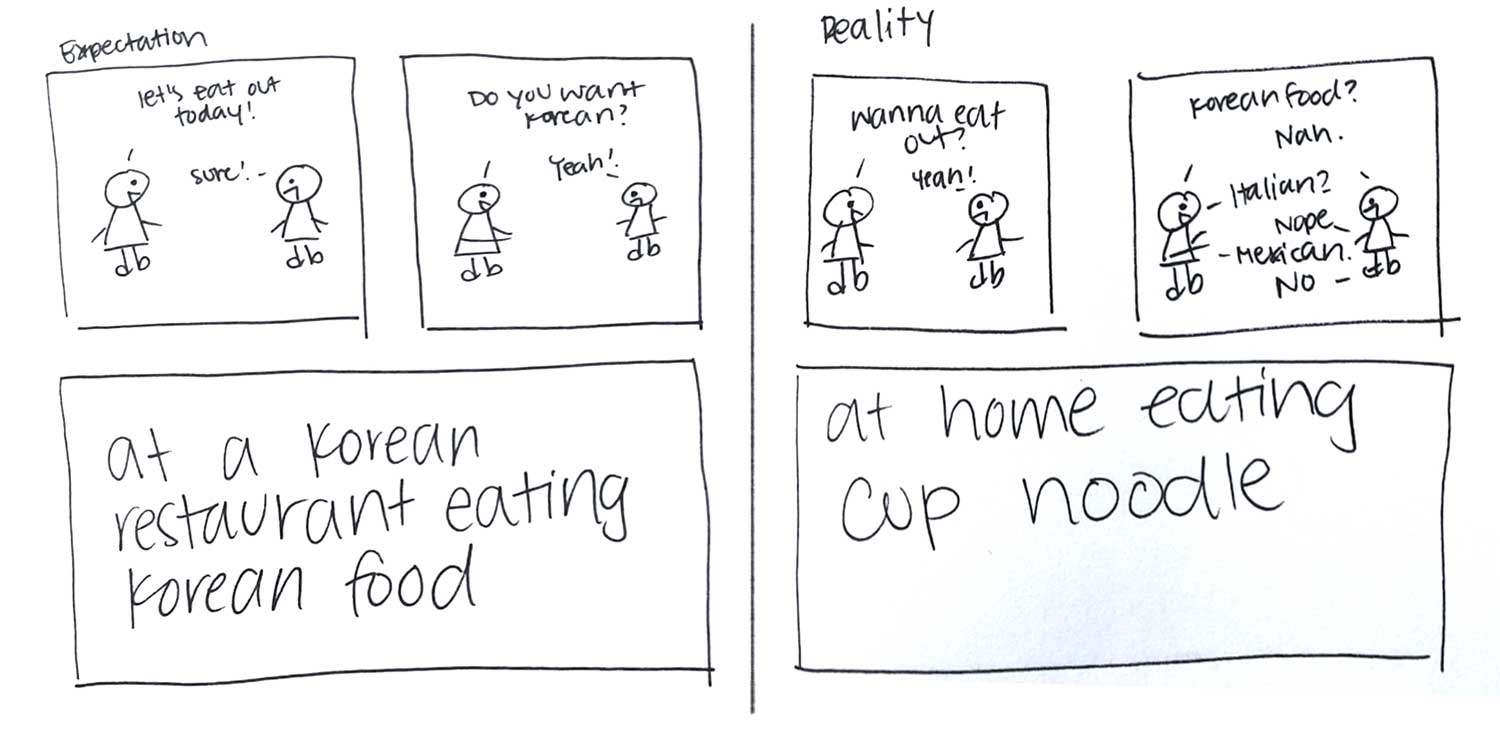 Expectation
let's eat out
today!
sure!
Do you want
Korean?
Yeah!
at a Korean
restaurant eating
Korean food
Reality
wanna eat
out?
yeah!
Korean food?
Nah.
- Italian?
Nope
- Mexican.
NO -
at home eating
cup noodle